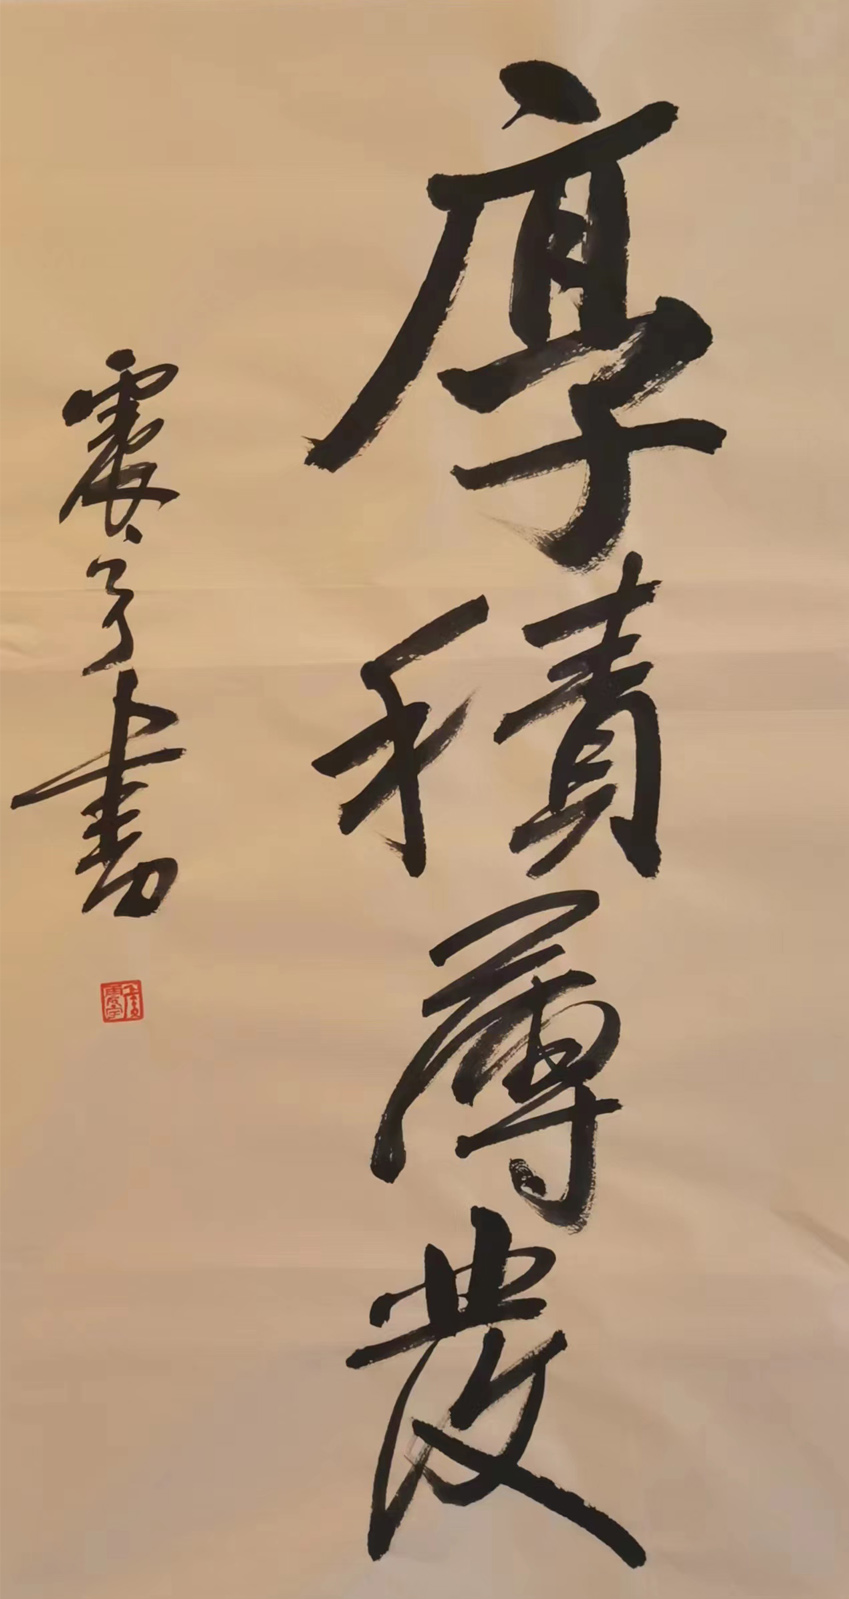 厚積薄發
震宇書